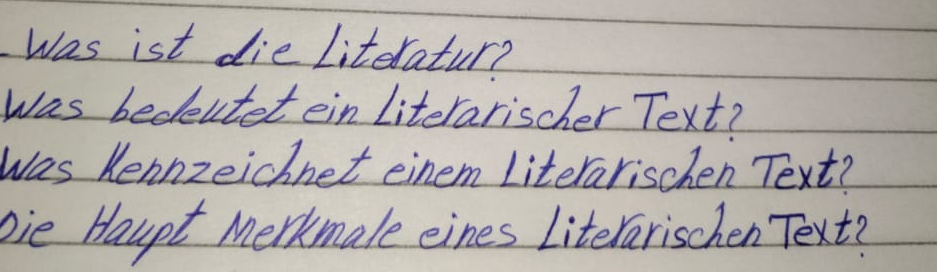 - Was ist die Literatur?
Was bedeutet ein Literarischer Text?
Was Kennzeichnet einem Literarischen Text?
Die Haupt Merkmale eines Literarischen Text?